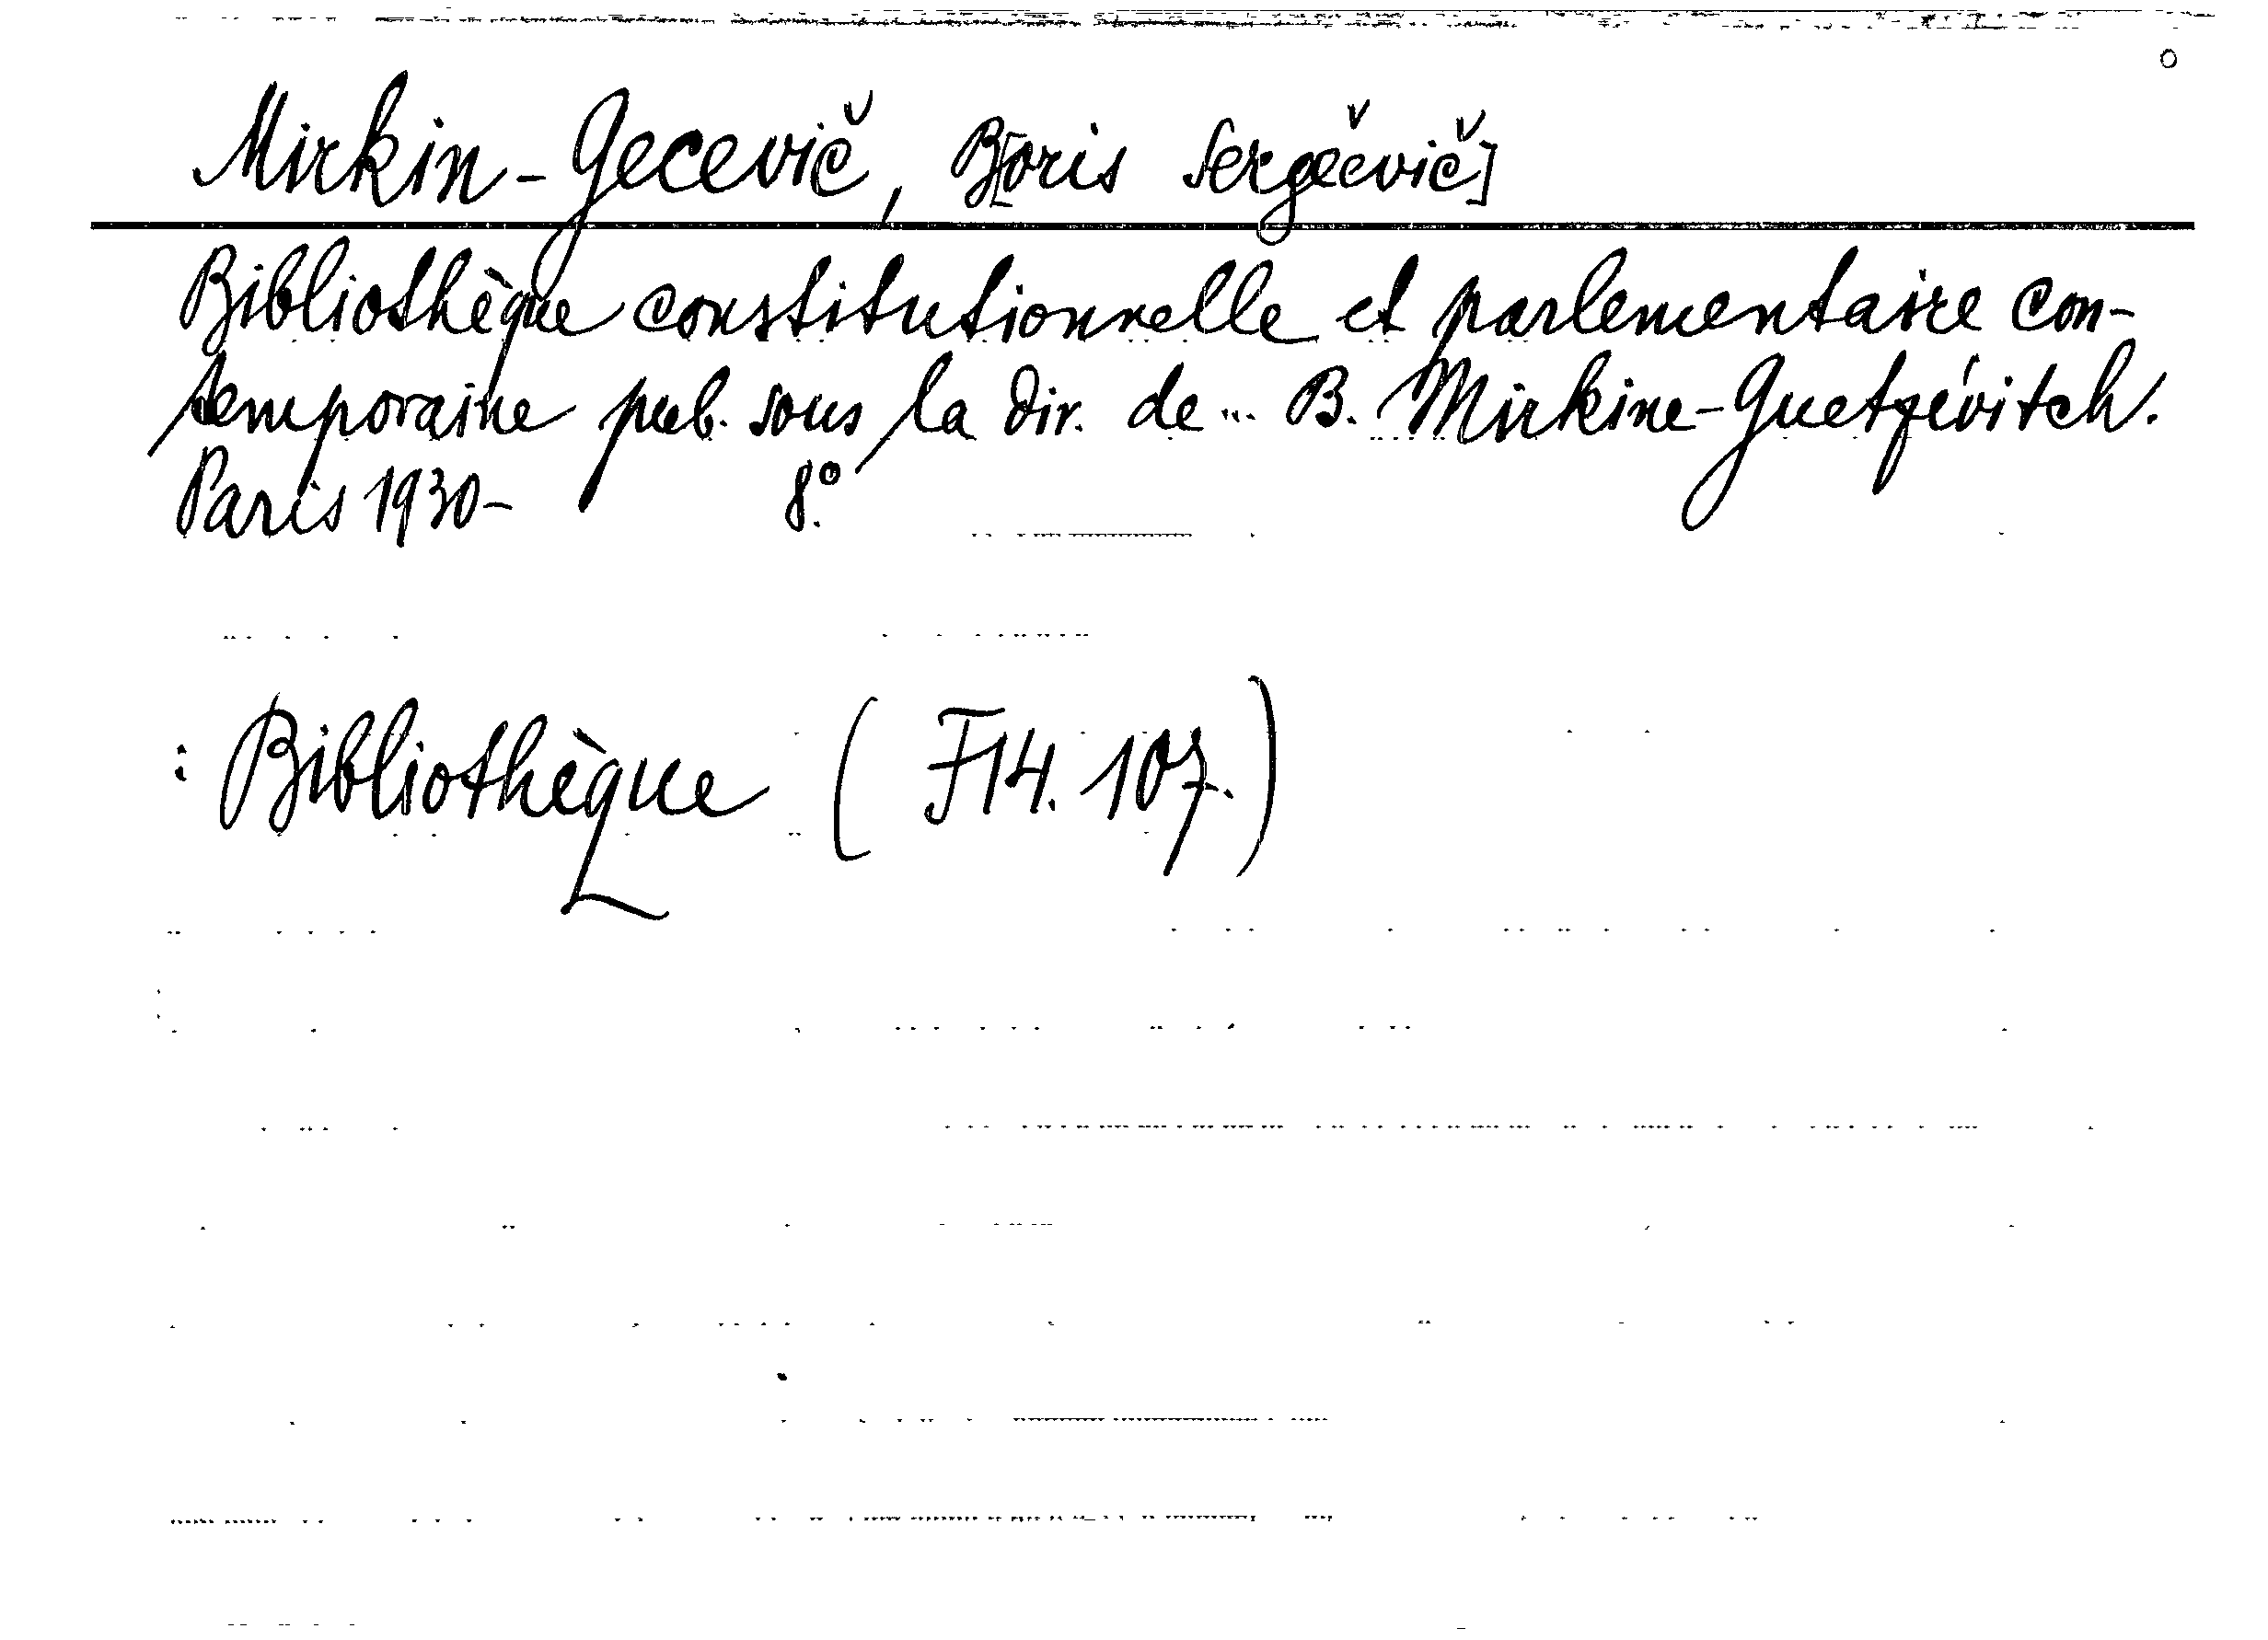 Mirkin-Gecevič, B[oris Sergěevič]
Bibliothèque constitutionnelle et parlementaire con-
temporaine pub. sous la dir. de ... B. Mirkine-Guetzévitch.
Paris 1930- 8°.
: Bibliothèque (F14. 107.)